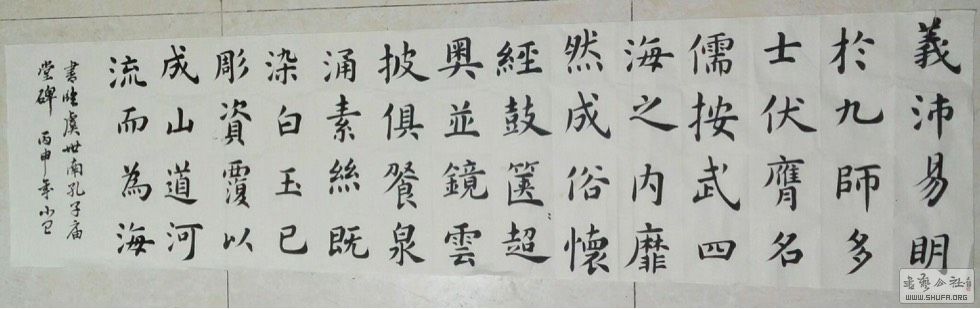 義沛易眀
於九師多
士伏膺名
儒按武四
海之内靡
然成俗懷
經鼓篋超
奥並鏡雲
披俱餐泉
涌素絲既
染白玉已
彫資覆以
成山道河
流而為海
虞世南孔子庙
堂碑 丙申年小
公社
WWW.SHUFA.ORG